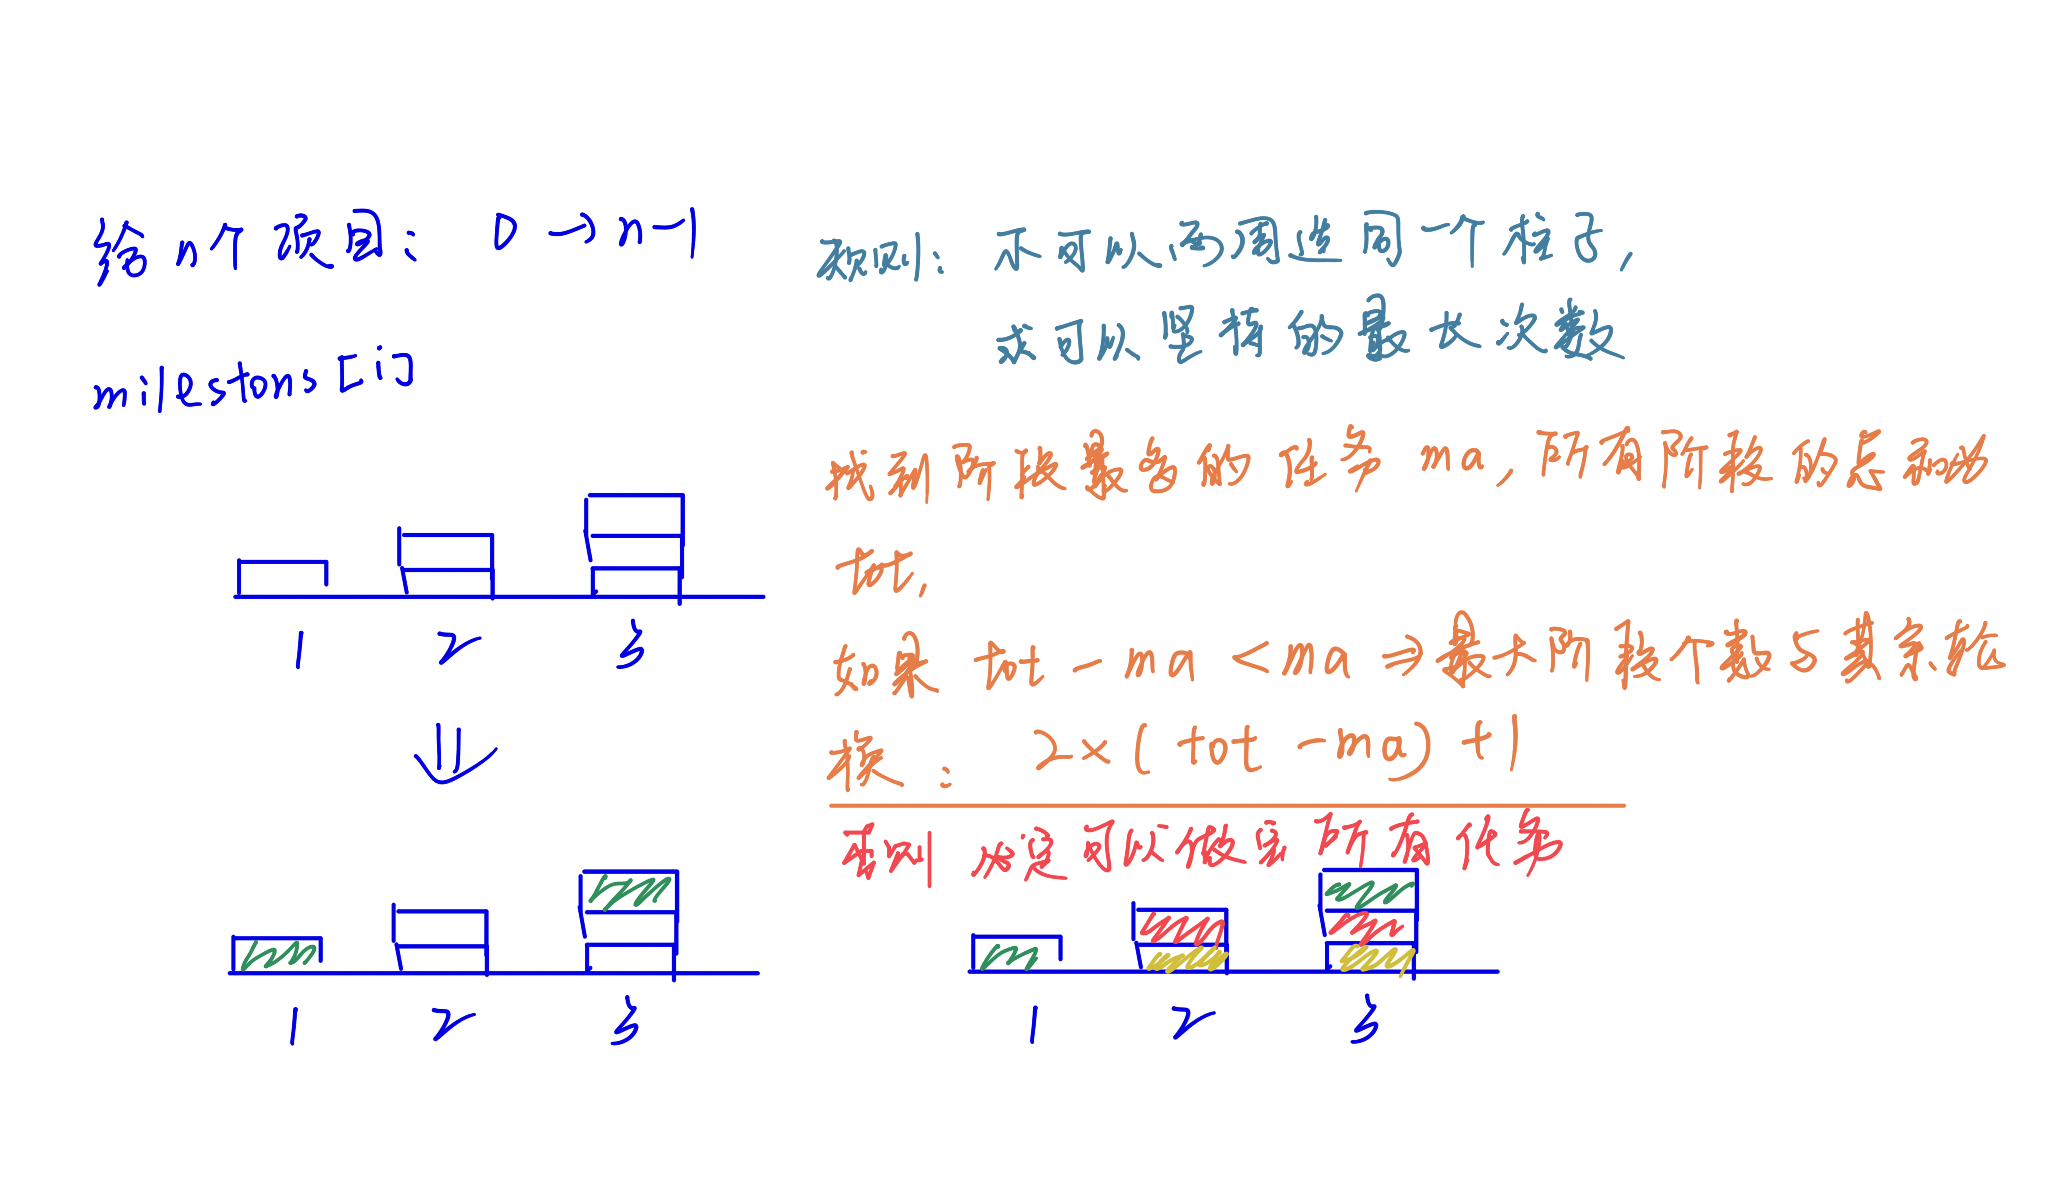 给n个项目: 0→n-1
milestons[i]
1 2 3
⇓
1 2 3
规则: 不可以两周选同一个柱子,
求可以坚持的最长次数
找到阶段最多的任务 ma, 所有阶段的总和为
tot,
如果 tot - ma < ma ⇒ 最大阶段个数与其余轮
换: 2×(tot - ma)+1
否则 必定可以做完所有任务
1 2 3